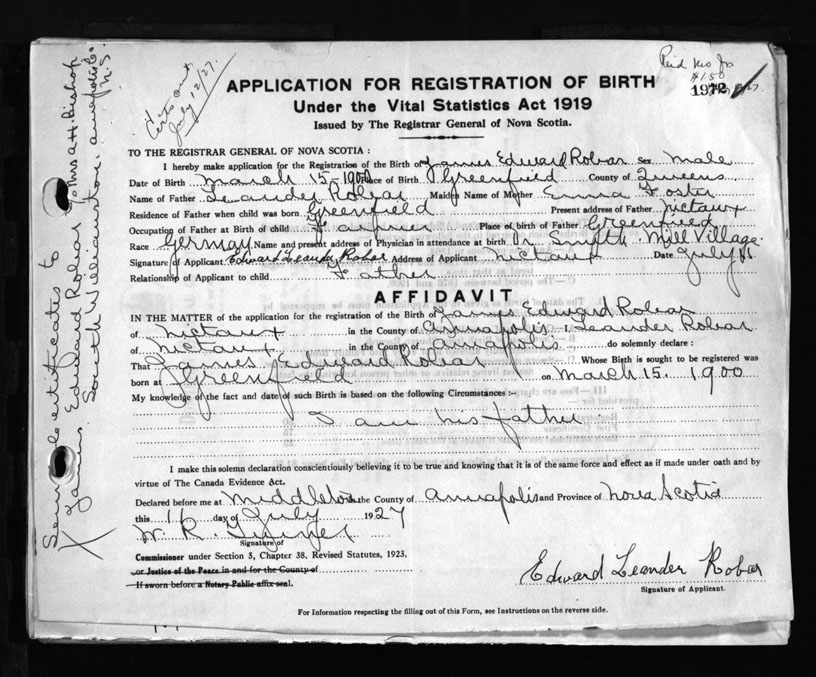 Certs out
July 12/27.
Paid
$1.50
1972
APPLICATION FOR REGISTRATION OF BIRTH
Under the Vital Statistics Act 1919
Issued by The Registrar General of Nova Scotia.
TO THE REGISTRAR GENERAL OF NOVA SCOTIA :
I hereby make application for the Registration of the Birth of James Edward Robar Sex Male
Date of Birth March 15-1900 Place of Birth Greenfield County of Queens
Name of Father Leander Robar Maiden Name of Mother Emma Foster
Residence of Father when child was born Greenfield Present address of Father Nictaux
Occupation of Father at Birth of child Farmer Place of birth of Father Greenfield
Race German Name and present address of Physician in attendance at birth Dr Smith Mill Village
Signature of Applicant Edward Leander Robar Address of Applicant Nictaux Date July
Relationship of Applicant to child Father
AFFIDAVIT
IN THE MATTER of the application for the Registration of the Birth of James Edward Robar
of Nictaux in the County of Annapolis I Leander Robar
of Nictaux in the County of Annapolis do solemnly declare :
That James Edward Robar Whose Birth is sought to be registered was
born at Greenfield on March 15. 1900
My knowledge of the fact and date of such Birth is based on the following Circumstances :-
I am his father
I make this solemn declaration conscientiously believing it to be true and knowing that it is of the same force and effect as if made under oath and by
virtue of The Canada Evidence Act.
Declared before me at Middleton the County of Annapolis and Province of Nova Scotia
this 16 day of July 1927
W. R.
Signature of
Commissioner under Section 5, Chapter 38, Revised Statutes, 1923.
or Justice of the Peace in and for the County of
If sworn before a Notary Public affix seal.
Edward Leander Robar
Signature of Applicant.
For Information respecting the filling out of this Form, see Instructions on the reverse side.
Send certificates to
X James Edward Robar % Mrs A H. Bishop
South Williamston, Annapolis Co.
N.S.